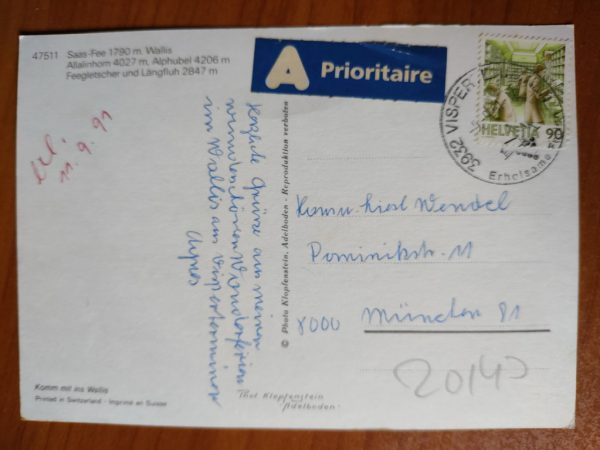 47511 Saas-Fee 1790 m, Wallis
Allalinhorn 4027 m, Alphubel 4206 m
Feegletscher und Längfluh 2847 m
A Prioritaire
HELVETIA 90
3932 VISPER
Erholsame
11.9.91
Herzliche Grüsse aus meinen
wunderschönen Wanderferien
im Wallis aus Visperterminen
Agnes
© Photo Klopfenstein, Adelboden - Reproduktion verboten
Wendel
Dominikstr. 11
8000 München 81
20143
Komm mit ins Wallis
Printed in Switzerland - Imprimé en Suisse
Thol Klopfenstein
Adelboden